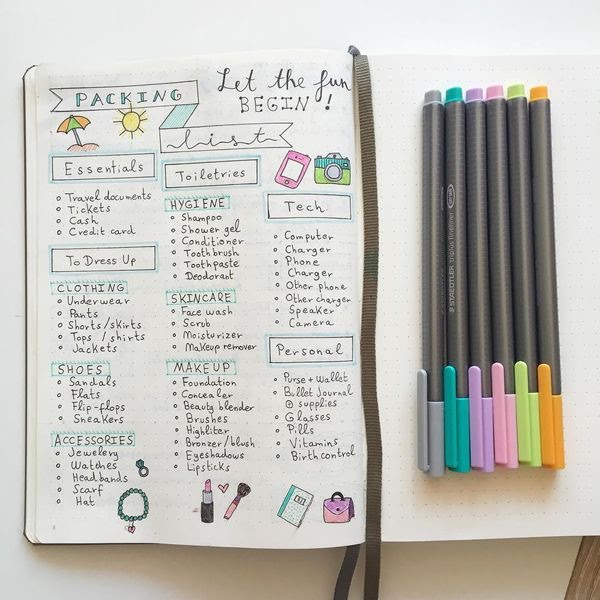 PACKING
list
Let the fun
BEGIN!
Essentials
Travel documents
Tickets
Cash
Credit card
To Dress Up
CLOTHING
Underwear
Pants
Shorts/skirts
Tops / shirts
Jackets
SHOES
Sandals
Flats
Flip-flops
Sneakers
ACCESSORIES
Jewelery
Watches
Headbands
Scarf
Hat
Toiletries
HYGIENE
Shampoo
Shower gel
Conditioner
Toothbrush
Toothpaste
Deodorant
SKINCARE
Face wash
Scrub
Moisturizer
Makeup remover
MAKEUP
Foundation
Concealer
Beauty blender
Brushes
Highliter
Bronzer/blush
Eyeshadows
Lipsticks
Tech
Computer
Charger
Phone
Charger
Other phone
Other charger
Speaker
Camera
Personal
Purse + Wallet
Bullet Journal
+ supplies
Glasses
Pills
Vitamins
Birth control
STAEDTLER triplus fineliner